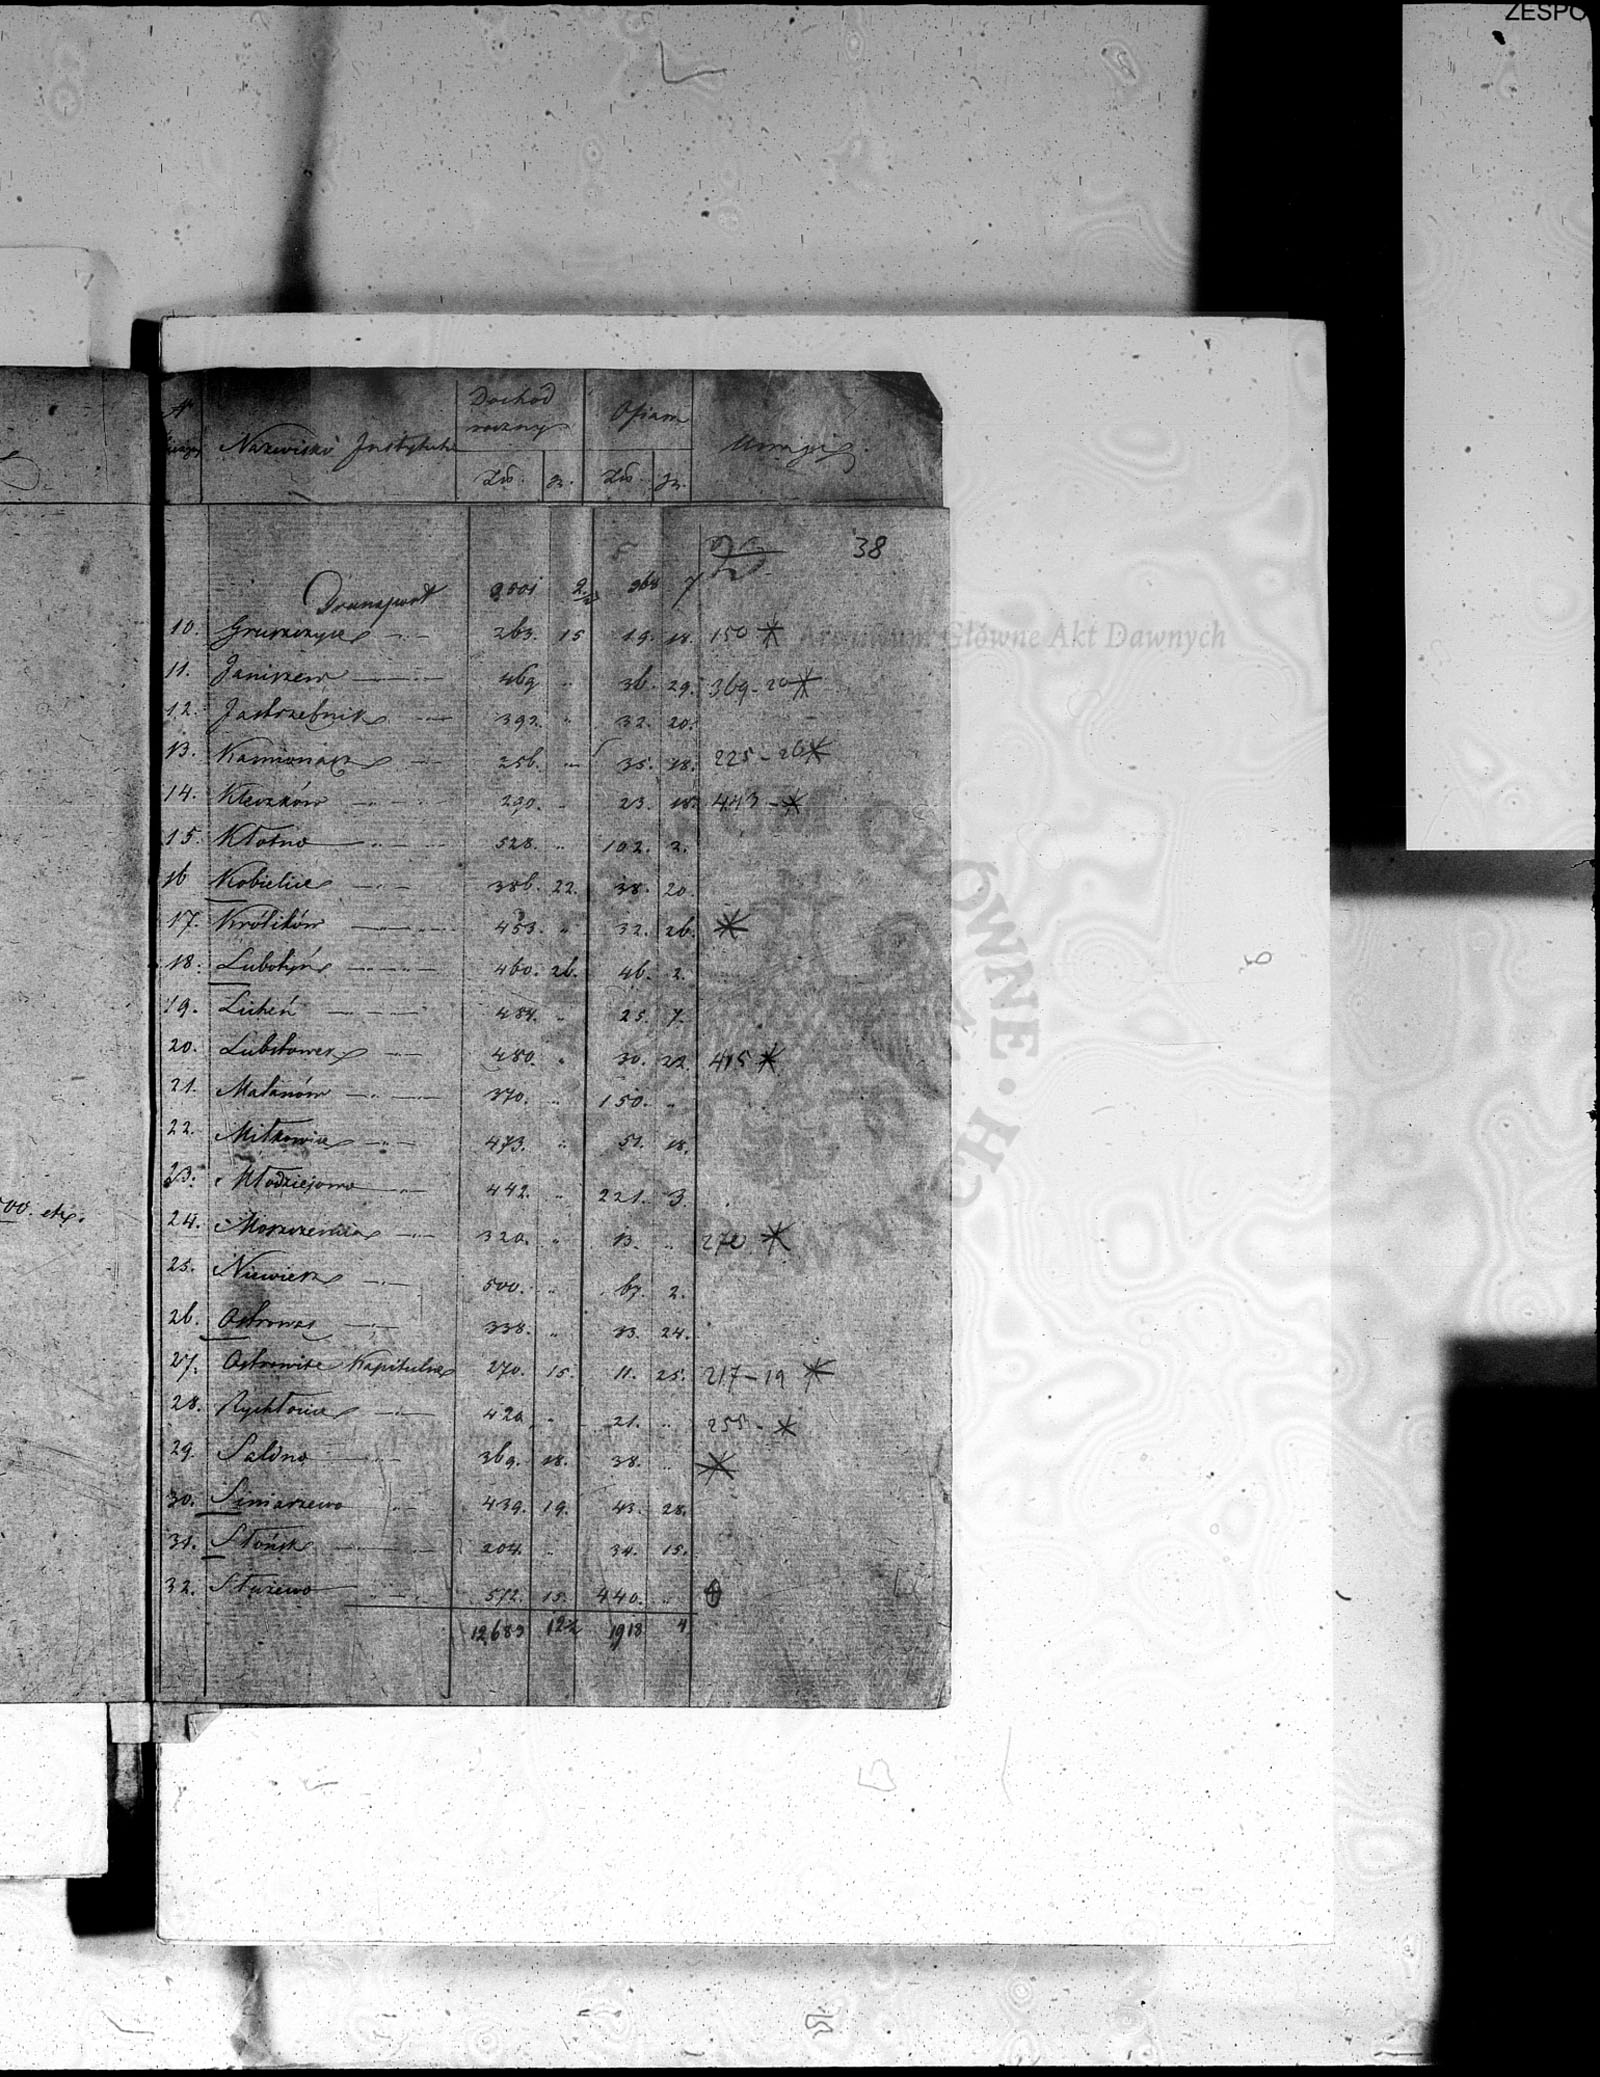 ZESPO
Nazwisko Instytutu Dochod roczny Ofiara Uwagi
Złp. gr. Złp. gr.
38
Transport 3501 2½ 368 7
10. Gruszczyce 263. 15 19. 18. 150 *
11. Janiszew 469 " 36. 29. 369-20 *
12. Jastrzębniki 392. " 32. 20.
13. Kamionacz 256. " 35. 18. 225-26 *
14. Kleczków 290. " 23. 18. 443- *
15. Kłotno 528. " 102. 2.
16 Kobielice 386. 22. 38. 20.
17. Królików 453. " 32. 26. *
18. Lubotyń 460. 26. 46. 2.
19. Licheń 484. " 25. 7.
20. Lubstówek 480. " 30. 22. 415 *
21. Malanów 370. " 150. "
22. Miłkowice 473. " 51. 18.
23. Młodziejowo 442. " 221. 3.
24. Moszczenica 320. " 13. " 270 *
25. Niewiesz 500. " 67. 2.
26. Ostrowąs 338. " 33. 24.
27. Ostrowite Kapitulne 270. 15. 11. 25. 217-19 *
28. Rychłocice 420. " 21. " 255- *
29. Saldno 369. 18. 38. " *
30. Siniarzewo 439. 19. 43. 28.
31. Słońsk 204. " 34. 15.
32. Służewo 572. 15. 440. "
12683 12½ 1918 4
00. etc.
Archiwum Główne Akt Dawnych